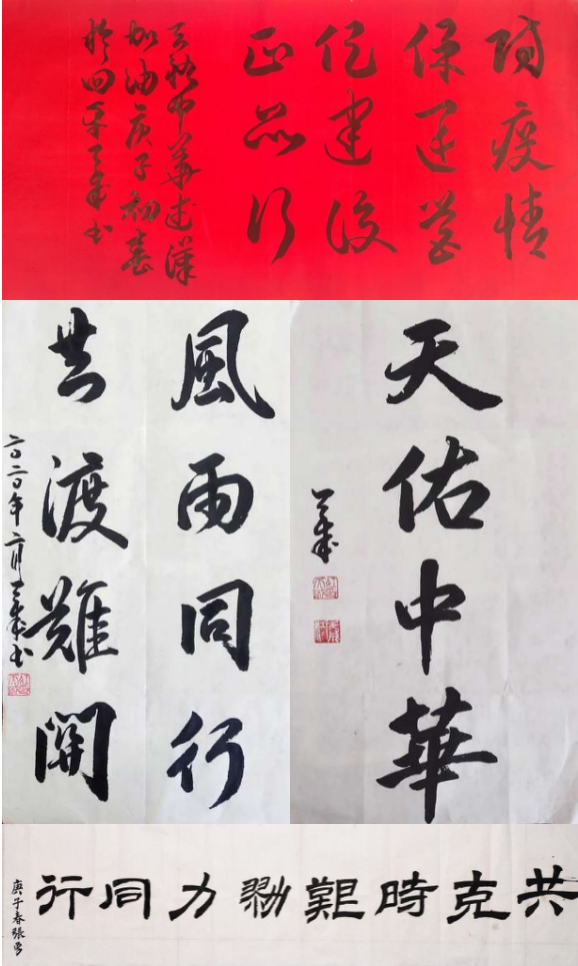 防疫情
保運營
促建設
正品行
天佑中華武漢
加油庚子初春
於四平書
天佑中華
風雨同行
共渡難關
二〇二〇年二月書
共克時艱勠力同行
庚子春張